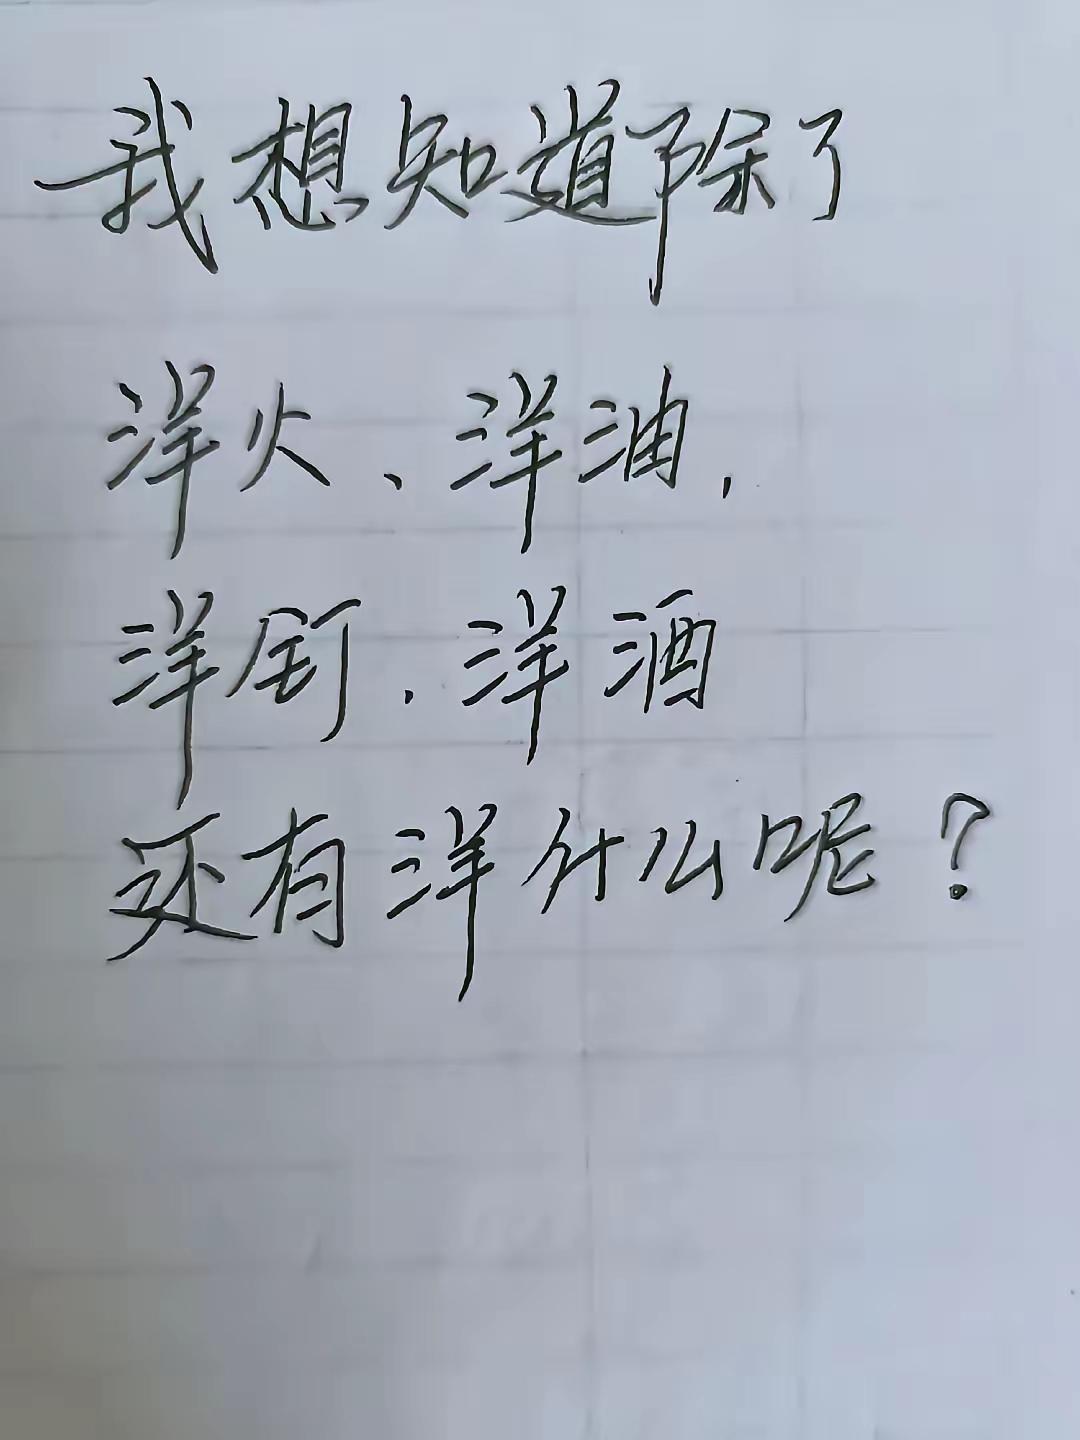 我想知道除了
洋火、洋油,
洋钉.洋酒
还有洋什么呢?